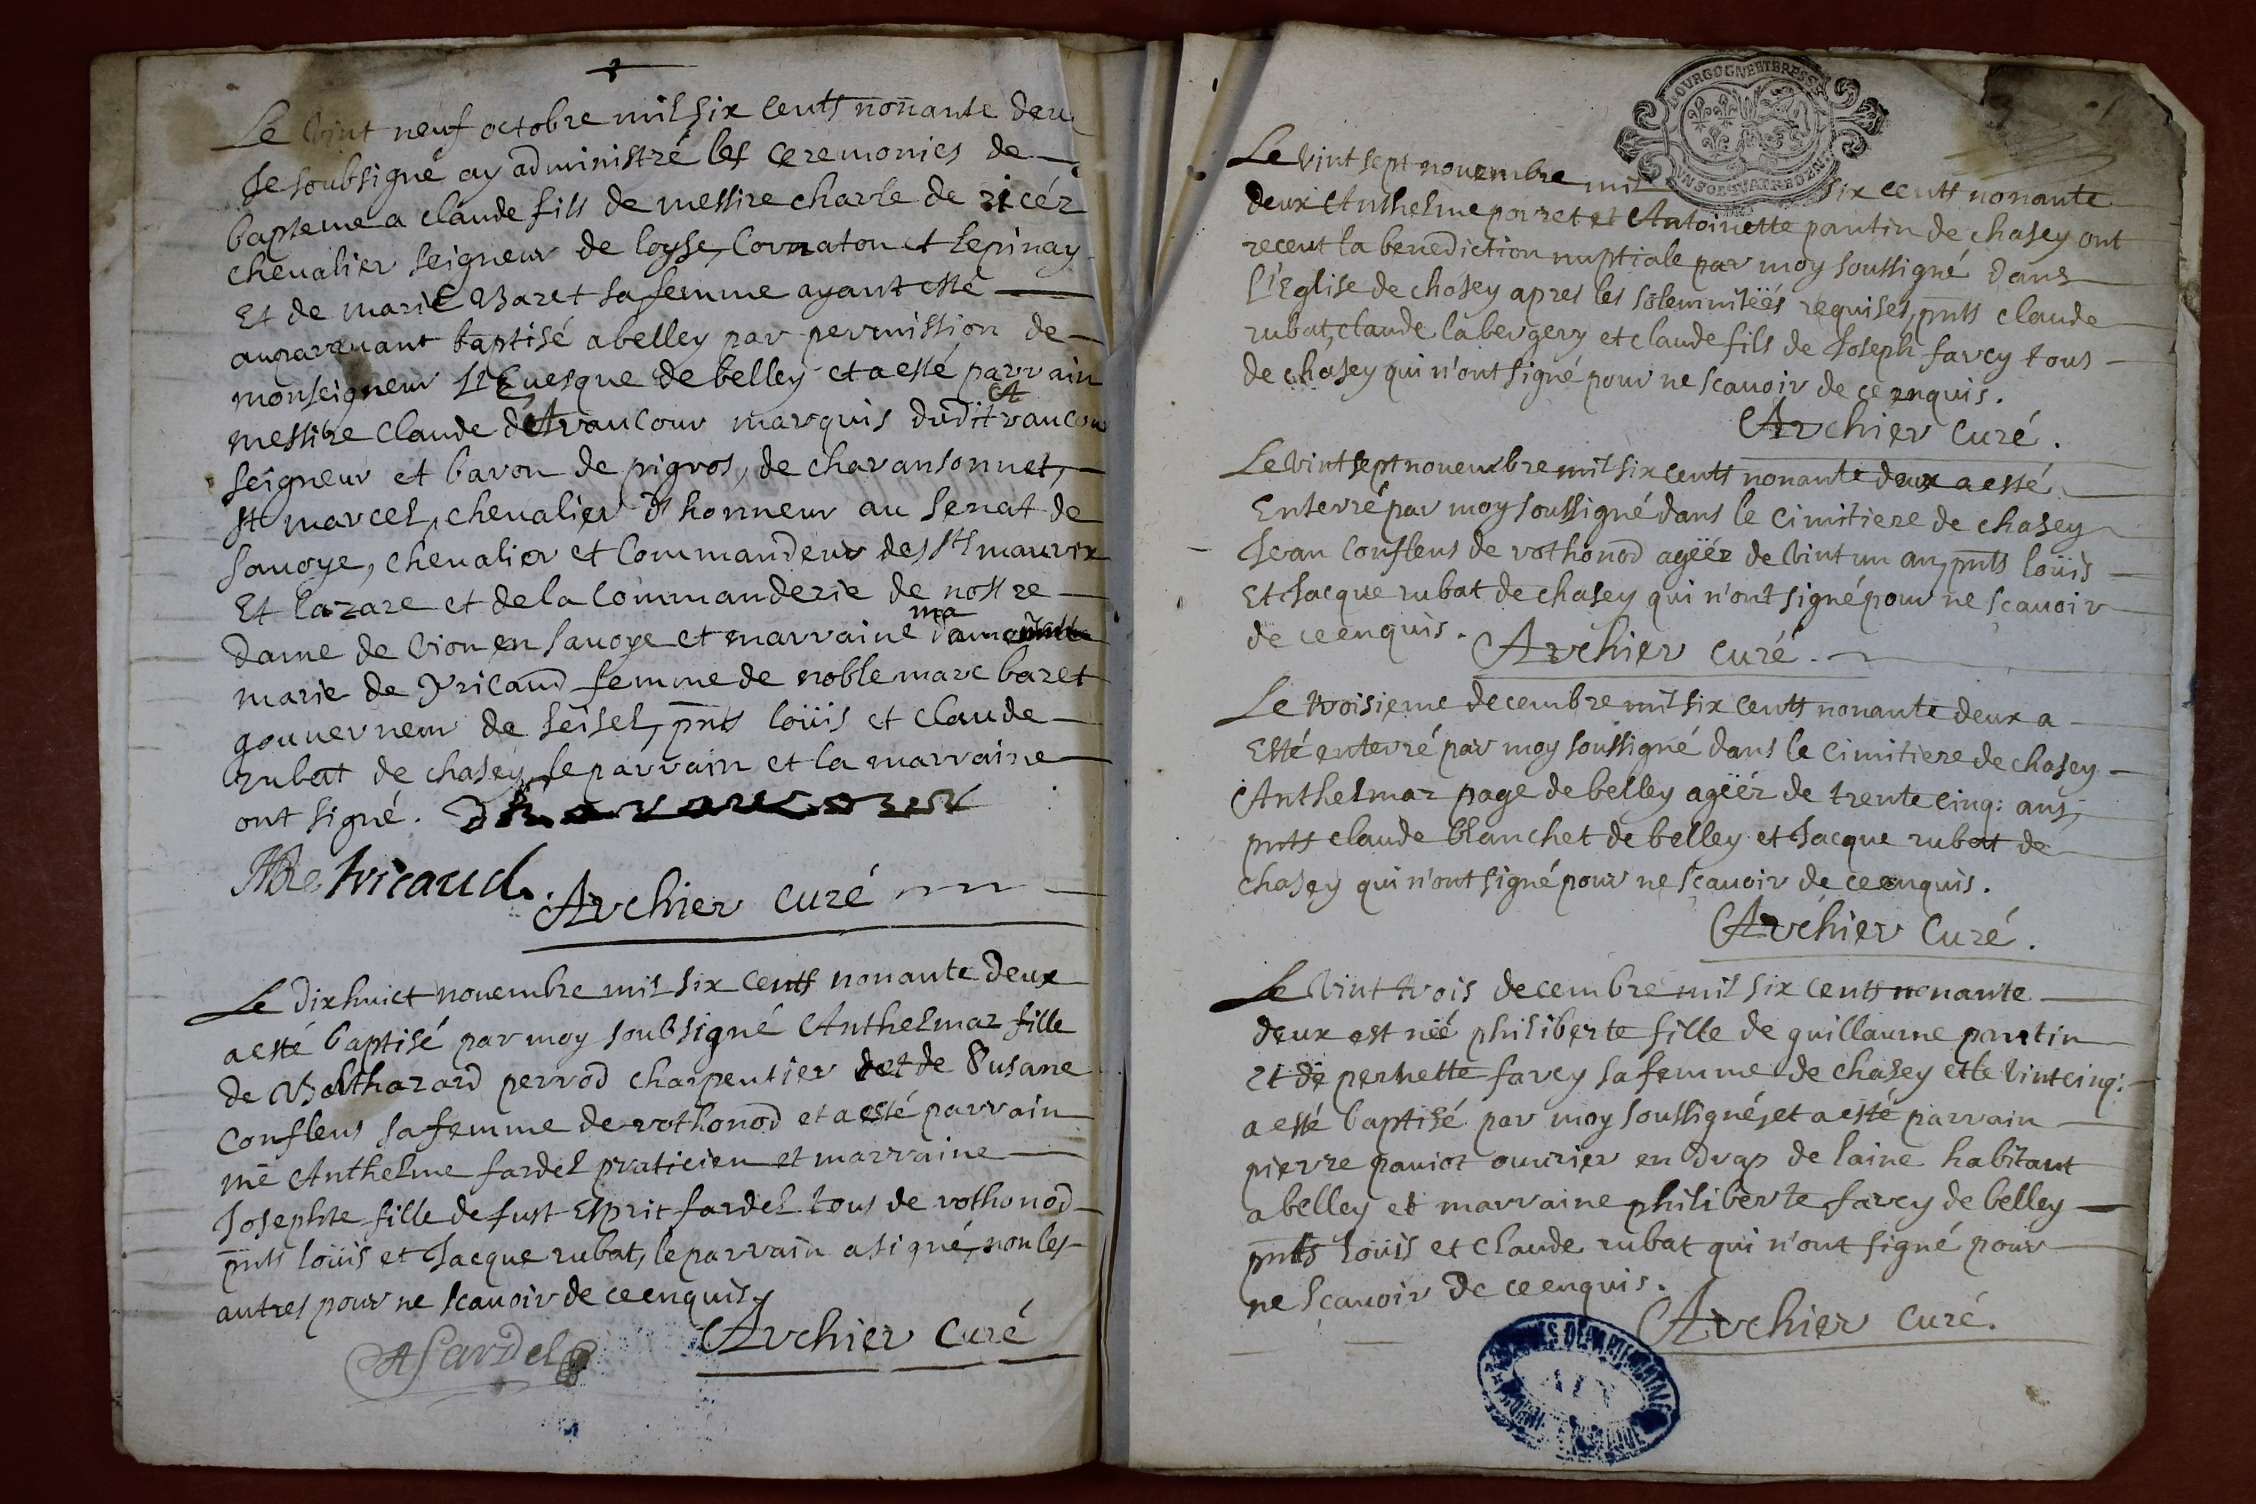 Le vint neuf octobre mil six cents nonante deux
Je soubsigné ay administré les ceremonies de
bapteme a claude fils de messire charle de ricéz
chevalier seigneur de loyse, Cornaton et Lepinay
Et de marie Baret sa femme ayant esté
auparavant baptisé a belley par permission de
monseigneur L'Evesque de belley et a esté parrain
messire Claude de vaucour marquis dudit vaucour
seigneur et baron de pigros, de chavansonnet,
st marcel, chevalier d'honneur au senat de
savoye, chevalier et Commandeur des sts maurix
Et lazare et de la Commanderie de nostre
dame de vion en savoye et marraine
marie de Tricaud femme de noble marc baret
gouverneur de seisel, pnts loüis et claude
rubat de chasey, le parrain et la marraine
ont signé.
de tricaud
Archier curé
Le dixhuict novembre mil six cents nonante deux
a esté baptisé par moy soubsigné Anthelmaz fille
de Balthazard perrod charpentier et de Susane
Conflens sa femme de rothonod et a esté parrain
me Anthelme fardel praticien et marraine
Josephte fille de fust Esprit fardel tous de rothonod
pnts loüis et Jacque rubat, le parrain a signé, non les
autres pour ne scavoir de ce enquis
Archier curé
A fardel
BOURGOGNE ET BRESSE
Le vint sept novembre mil six cents nonante
deux Anthelme poirret et Antoinette pantin de chasey ont
receut la benediction nuptiale par moy soussigné dans
L'Eglise de chasey apres les solemnitéés requises, pnts claude
rubat, claude labergery et claude fils de Joseph farcy tous
de chasey qui n'ont signé pour ne scavoir de ce enquis.
Archier Curé.
Le vint sept novembre mil six cents nonante deux a esté
Enterré par moy soussigné dans le cimitiere de chasey
Jean Conflens de rothonod agéér de vint un an, pnts loüis
Et Jacque rubat de chasey qui n'ont signé pour ne sçavoir
de ce enquis. Archier curé.
Le troisieme decembre mil six cents nonante deux a
Esté enterré par moy soussigné dans le cimitiere de chasey
Anthelmaz page de belley agéér de trente cinq: ans,
pnts claude blanchet de belley et Jacque rubat de
chasey qui n'ont signé pour ne sçavoir de ce enquis.
Archier Curé.
Le vint trois decembre mil six cents nonante
deux est néé philiberte fille de guillaume pantin
et de pernette farcy sa femme de chasey et le vint cinq:
a esté baptisé par moy soussigné, et a esté parrain
pierre paviot ouvrier en drap de laine habitant
a belley et marraine philiberte farcy de belley
pnts loüis et claude rubat qui n'ont signé pour
ne sçavoir de ce enquis.
Archier curé.